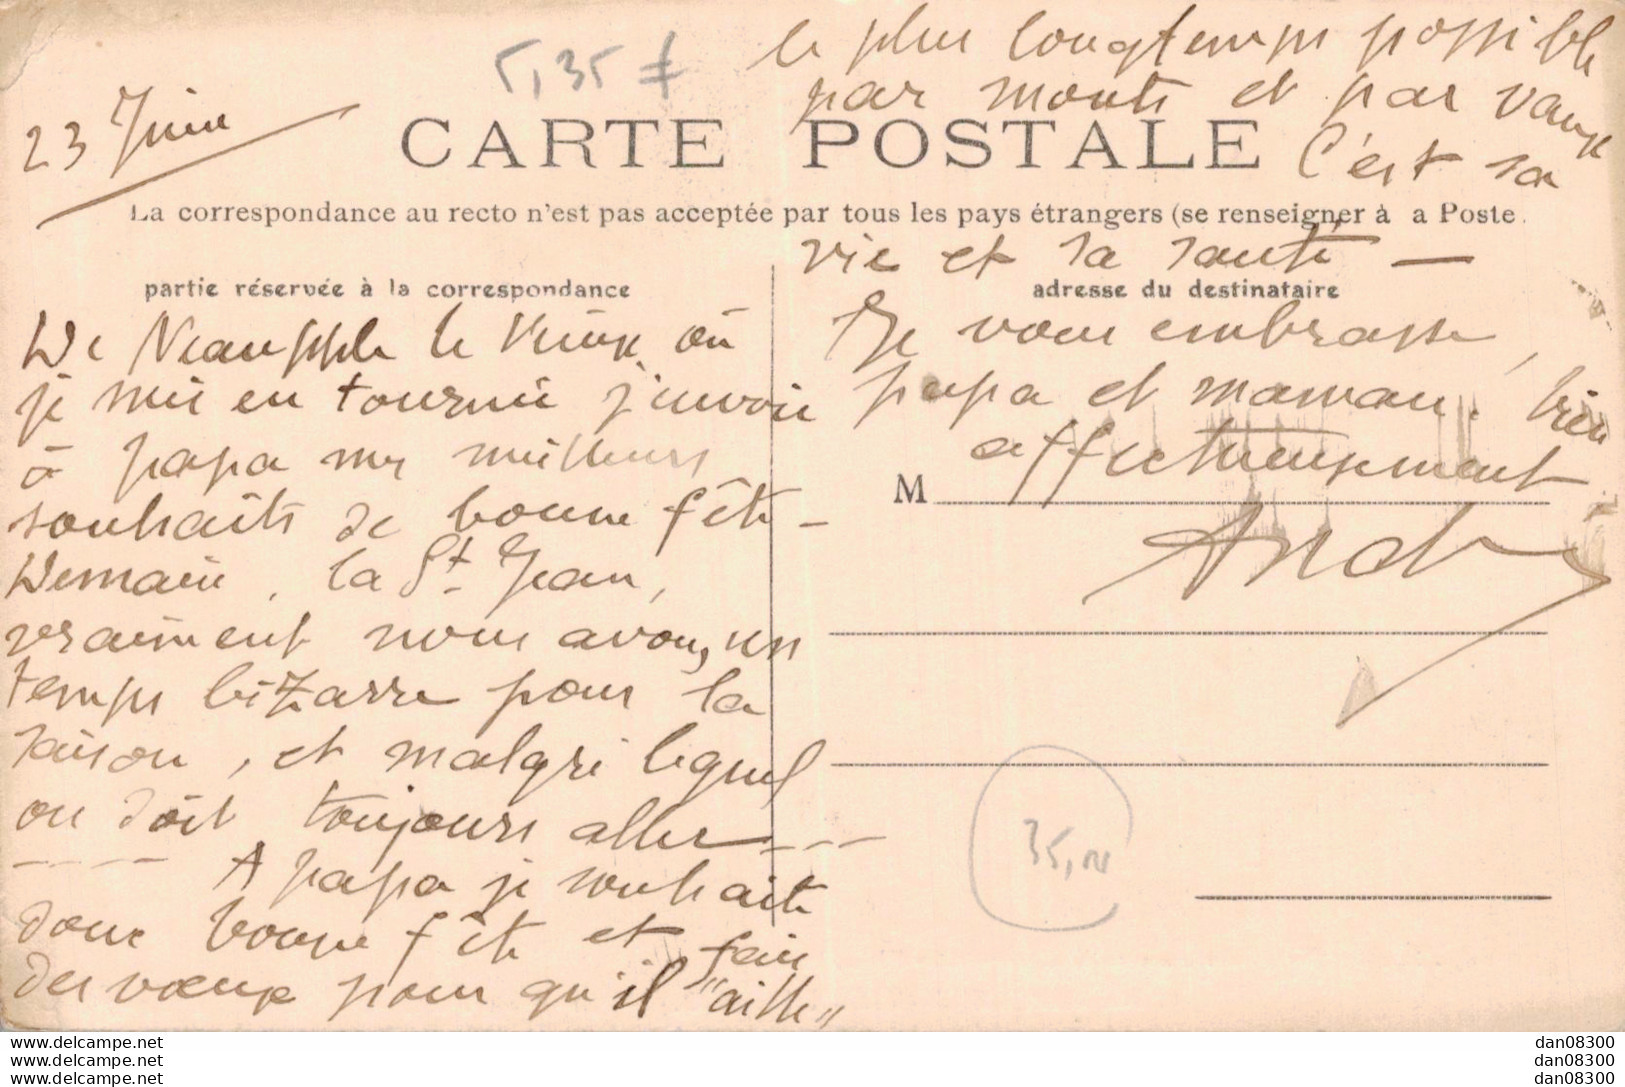 23 Juin
5,35 F
CARTE POSTALE
La correspondance au recto n'est pas acceptée par tous les pays étrangers (se renseigner à a Poste.
partie réservée à la correspondance
De Neauphle le Vieux où
je suis en tournée j'envoie
à papa mes meilleurs
souhaits de bonne fête -
Demain, la St Jean,
vraiment nous avons un
temps bizarre pour la
saison, et malgré lequel
on doit toujours aller ---
---- A papa je souhaite
donc bonne fête et fais
des vœux pour qu'il "aille"
le plus longtemps possible
par monts et par vaux
C'est sa
vie et sa santé -
adresse du destinataire
Je vous embrasse,
papa et maman, bien
affectueusement
M
André
35,00
dan08300
dan08300
dan08300
dan08300
dan08300
dan08300